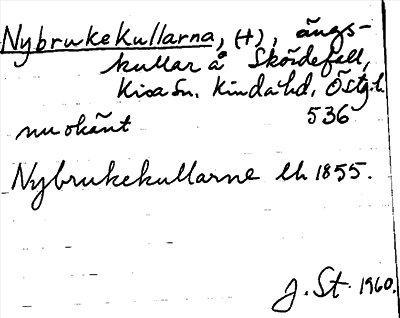 Nybrukekullarna, (+), ängs-
kullar å Skördefall,
Kisa sn. Kinda hd, Östg.l.
nu okänt 536
Nybrukekullarne lh 1855.
J. St. 1960.